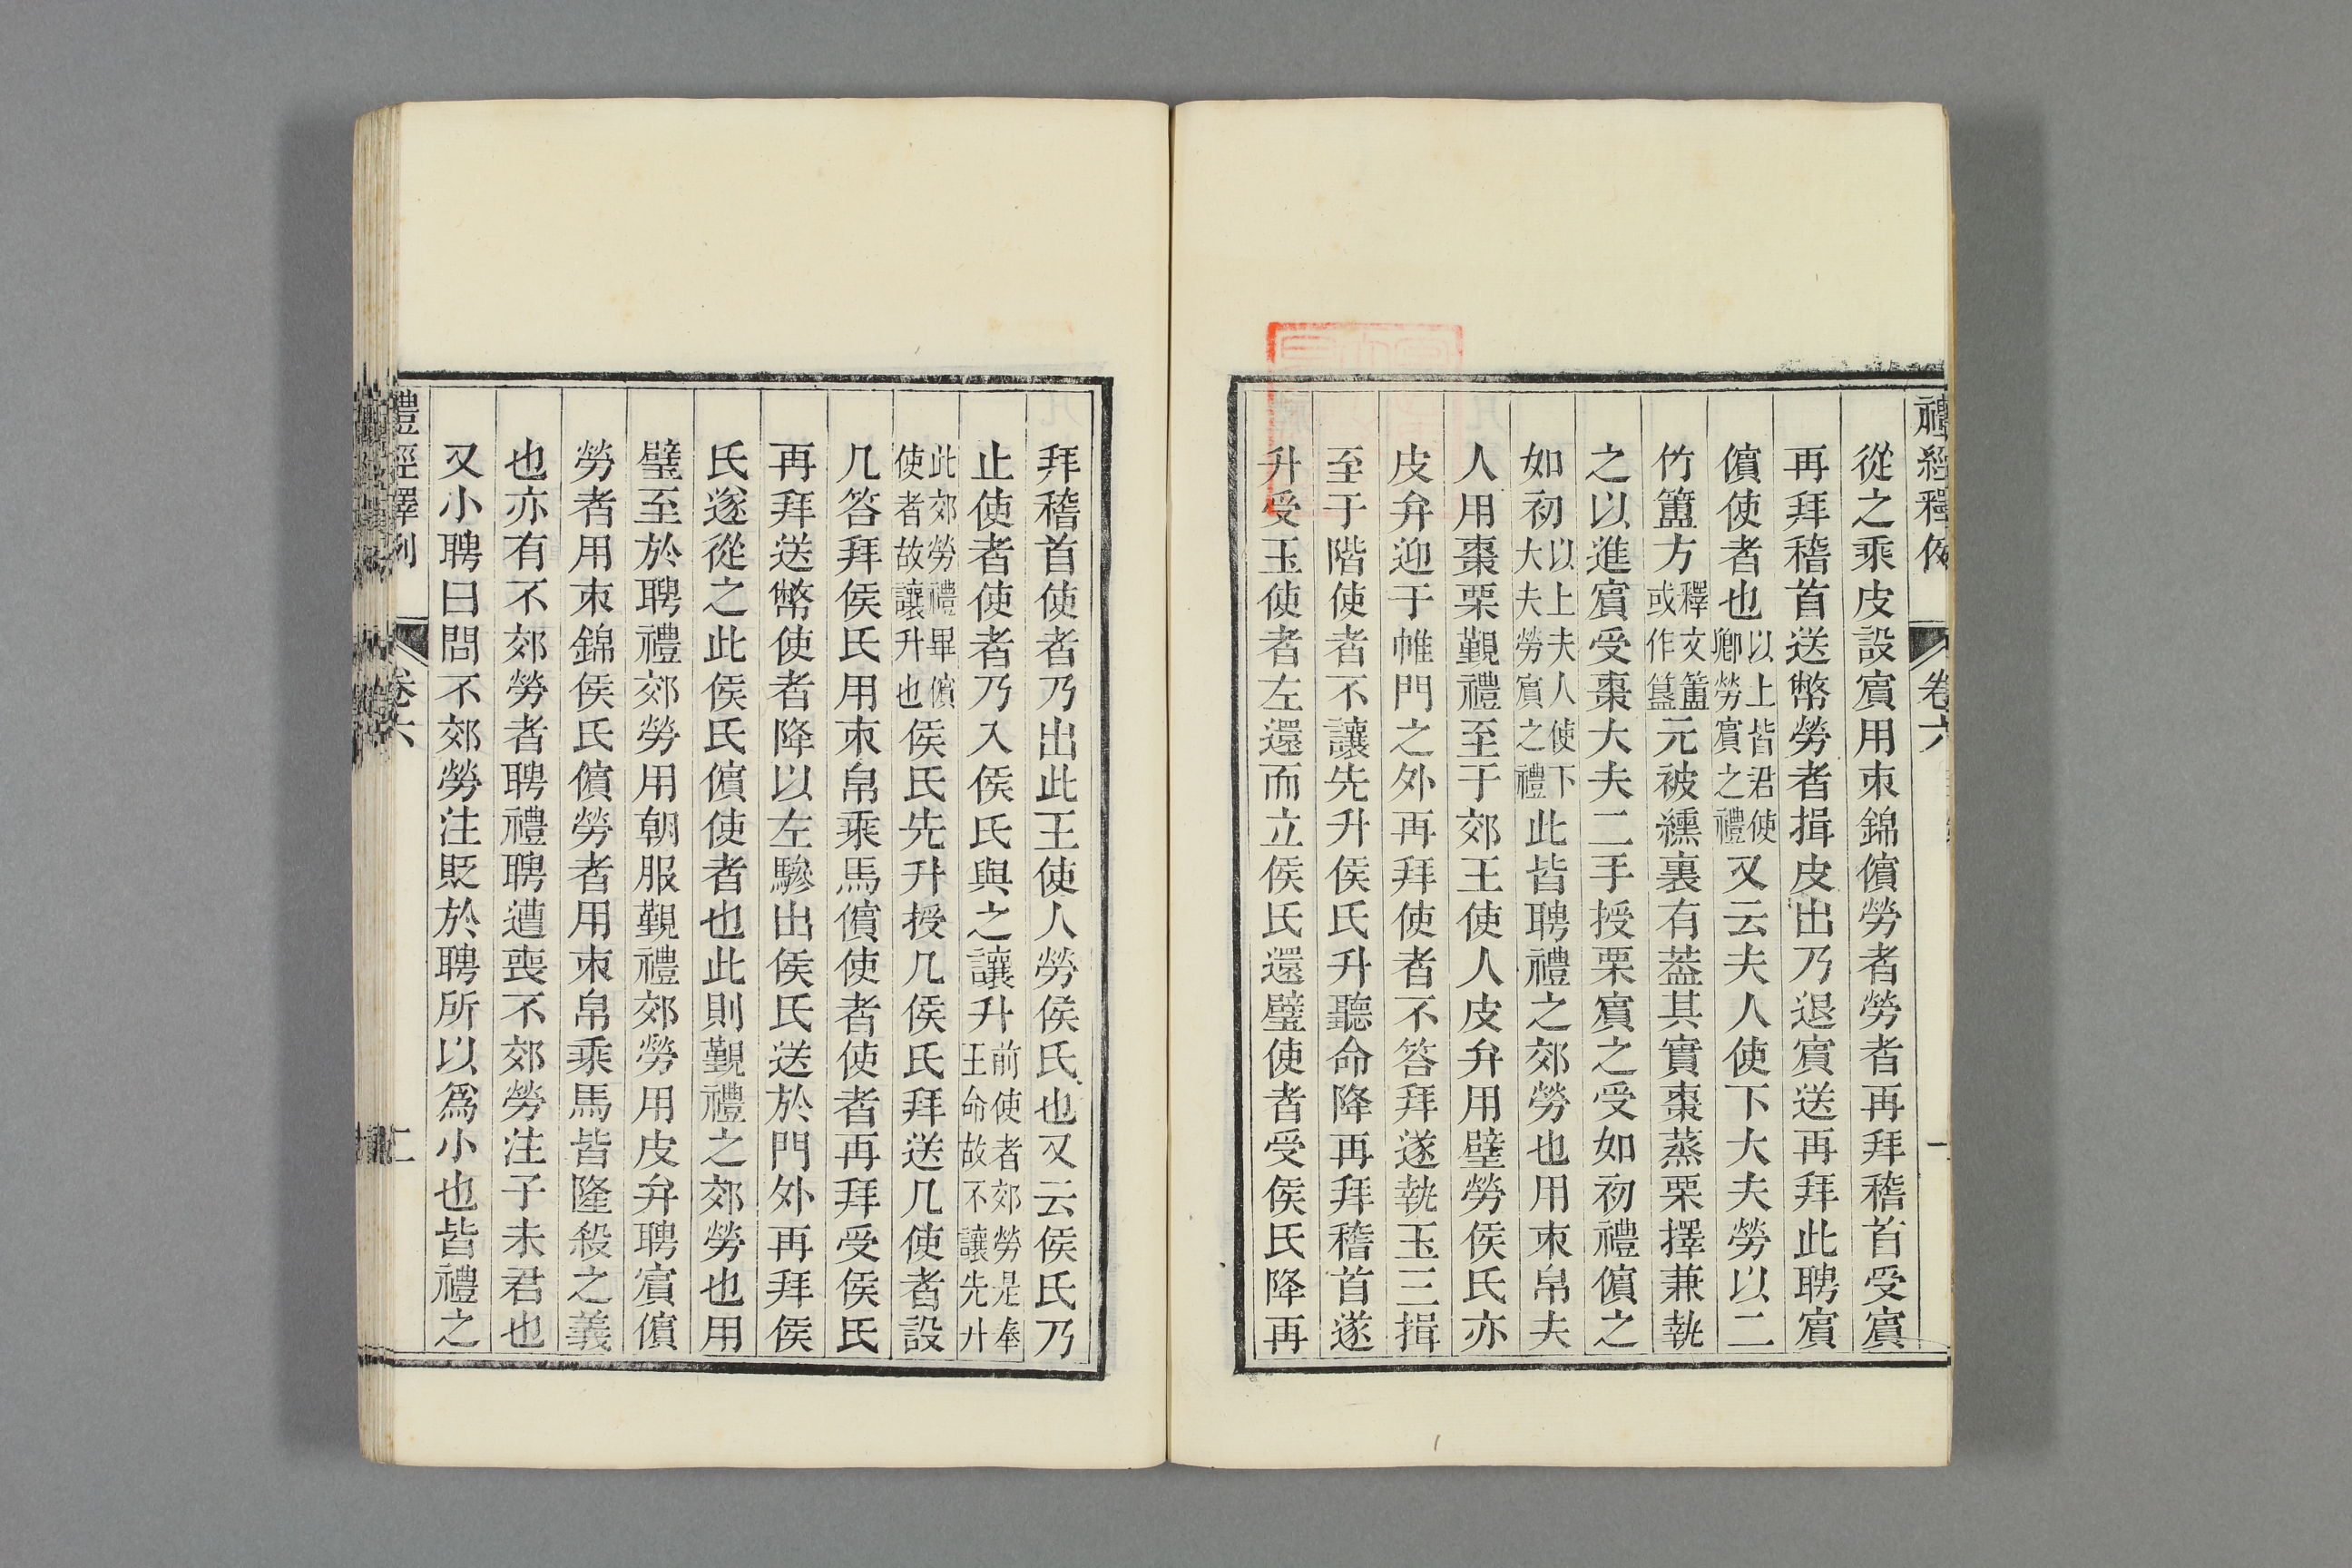 禮經釋例 卷六 一
從之乘皮設賔用束錦儐勞者勞者再拜稽首受賔
再拜稽首送幣勞者揖皮出乃退賔送再拜此聘賔
儐使者也以上皆君使卿勞賔之禮又云夫人使下大夫勞以二
竹簠方釋文簠或作簋元被纁裏有葢其實棗蒸栗擇兼執
之以進賔受棗大夫二手授栗賔之受如初禮儐之
如初以上夫人使下大夫勞賔之禮此皆聘禮之郊勞也用束帛夫
人用棗栗覲禮至于郊王使人皮弁用璧勞侯氏亦
皮弁迎于帷門之外再拜使者不答拜遂執玉三揖
至于階使者不讓先升侯氏升聽命降再拜稽首遂
升受玉使者左還而立侯氏還璧使者受侯氏降再
拜稽首使者乃出此王使人勞侯氏也又云侯氏乃
止使者使者乃入侯氏與之讓升前使者郊勞是奉王命故不讓先升
此郊勞禮畢儐使者故讓升也侯氏先升授几侯氏拜送几使者設
几答拜侯氏用束帛乘馬儐使者使者再拜受侯氏
再拜送幣使者降以左驂出侯氏送於門外再拜侯
氏遂從之此侯氏儐使者也此則覲禮之郊勞也用
璧至於聘禮郊勞用朝服覲禮郊勞用皮弁聘賔儐
勞者用束錦侯氏儐勞者用束帛乘馬皆隆殺之義
也亦有不郊勞者聘禮聘遭喪不郊勞注子未君也
又小聘曰問不郊勞注貶於聘所以爲小也皆禮之
禮經釋例 卷六 二